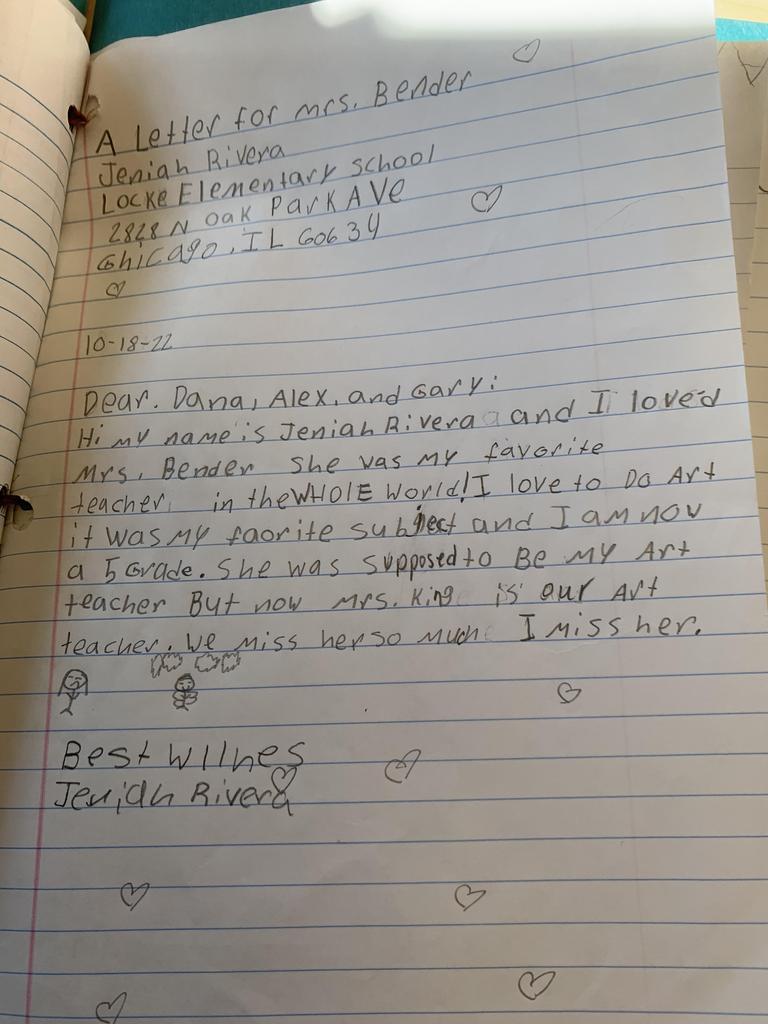 A Letter for mrs. Bender
Jeniah Rivera
Locke Elementary school
2828 N oak Park AVe
Chicago, IL 60634
10-18-22
Dear. Dana, Alex, and Gary:
Hi my name is Jeniah Rivera and I loved
Mrs. Bender She was my favorite
teacher in the WHOlE World! I love to Do Art
it was my faorite subject and I am now
a 5 Grade. She was supposed to Be my Art
teacher But now mrs. King is our Art
teacher. We miss her so much I miss her.
Best WIlhes
Jeniah Rivera